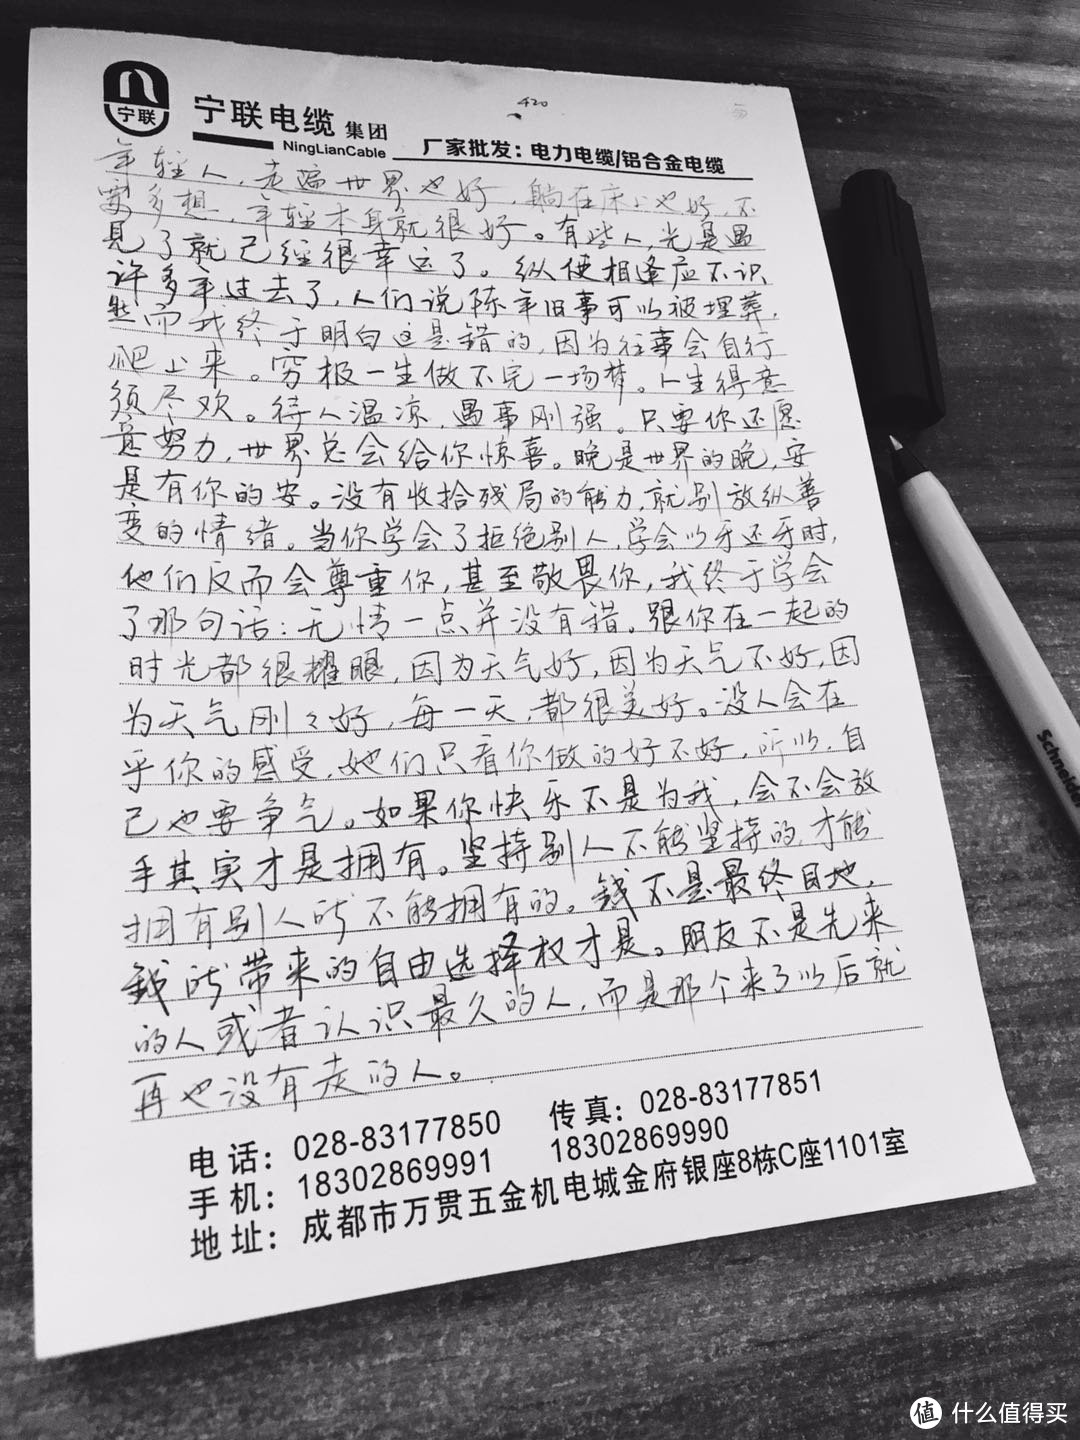 420
宁联
宁联电缆 集团
NingLianCable
厂家批发：电力电缆/铝合金电缆
年轻人，走遍世界也好，躺在床上也好，不
要多想，年轻本身就很好。有些人，光是遇
见了就已经很幸运了。纵使相逢应不识
许多年过去了，人们说陈年旧事可以被埋葬，
然而我终于明白这是错的，因为往事会自行
爬上来。穷极一生做不完一场梦。人生得意
须尽欢。待人温凉，遇事刚强。只要你还愿
意努力，世界总会给你惊喜。晚是世界的晚，安
是有你的安。没有收拾残局的能力，就别放纵善
变的情绪。当你学会了拒绝别人，学会以牙还牙时，
他们反而会尊重你，甚至敬畏你，我终于学会
了那句话：无情一点并没有错。跟你在一起的
时光都很耀眼，因为天气好，因为天气不好，因
为天气刚々好，每一天，都很美好。没人会在
乎你的感受，她们只看你做的好不好，所以，自
己也要争气。如果你快乐不是为我，会不会放
手其实才是拥有。坚持别人不能坚持的，才能
拥有别人所不能拥有的。钱不是最终目地，
钱所带来的自由选择权才是。朋友不是先来
的人或者认识最久的人，而是那个来了以后就
再也没有走的人。
电话：028-83177850 传真：028-83177851
手机：18302869991 18302869990
地址：成都市万贯五金机电城金府银座8栋C座1101室
Schneider
值 什么值得买